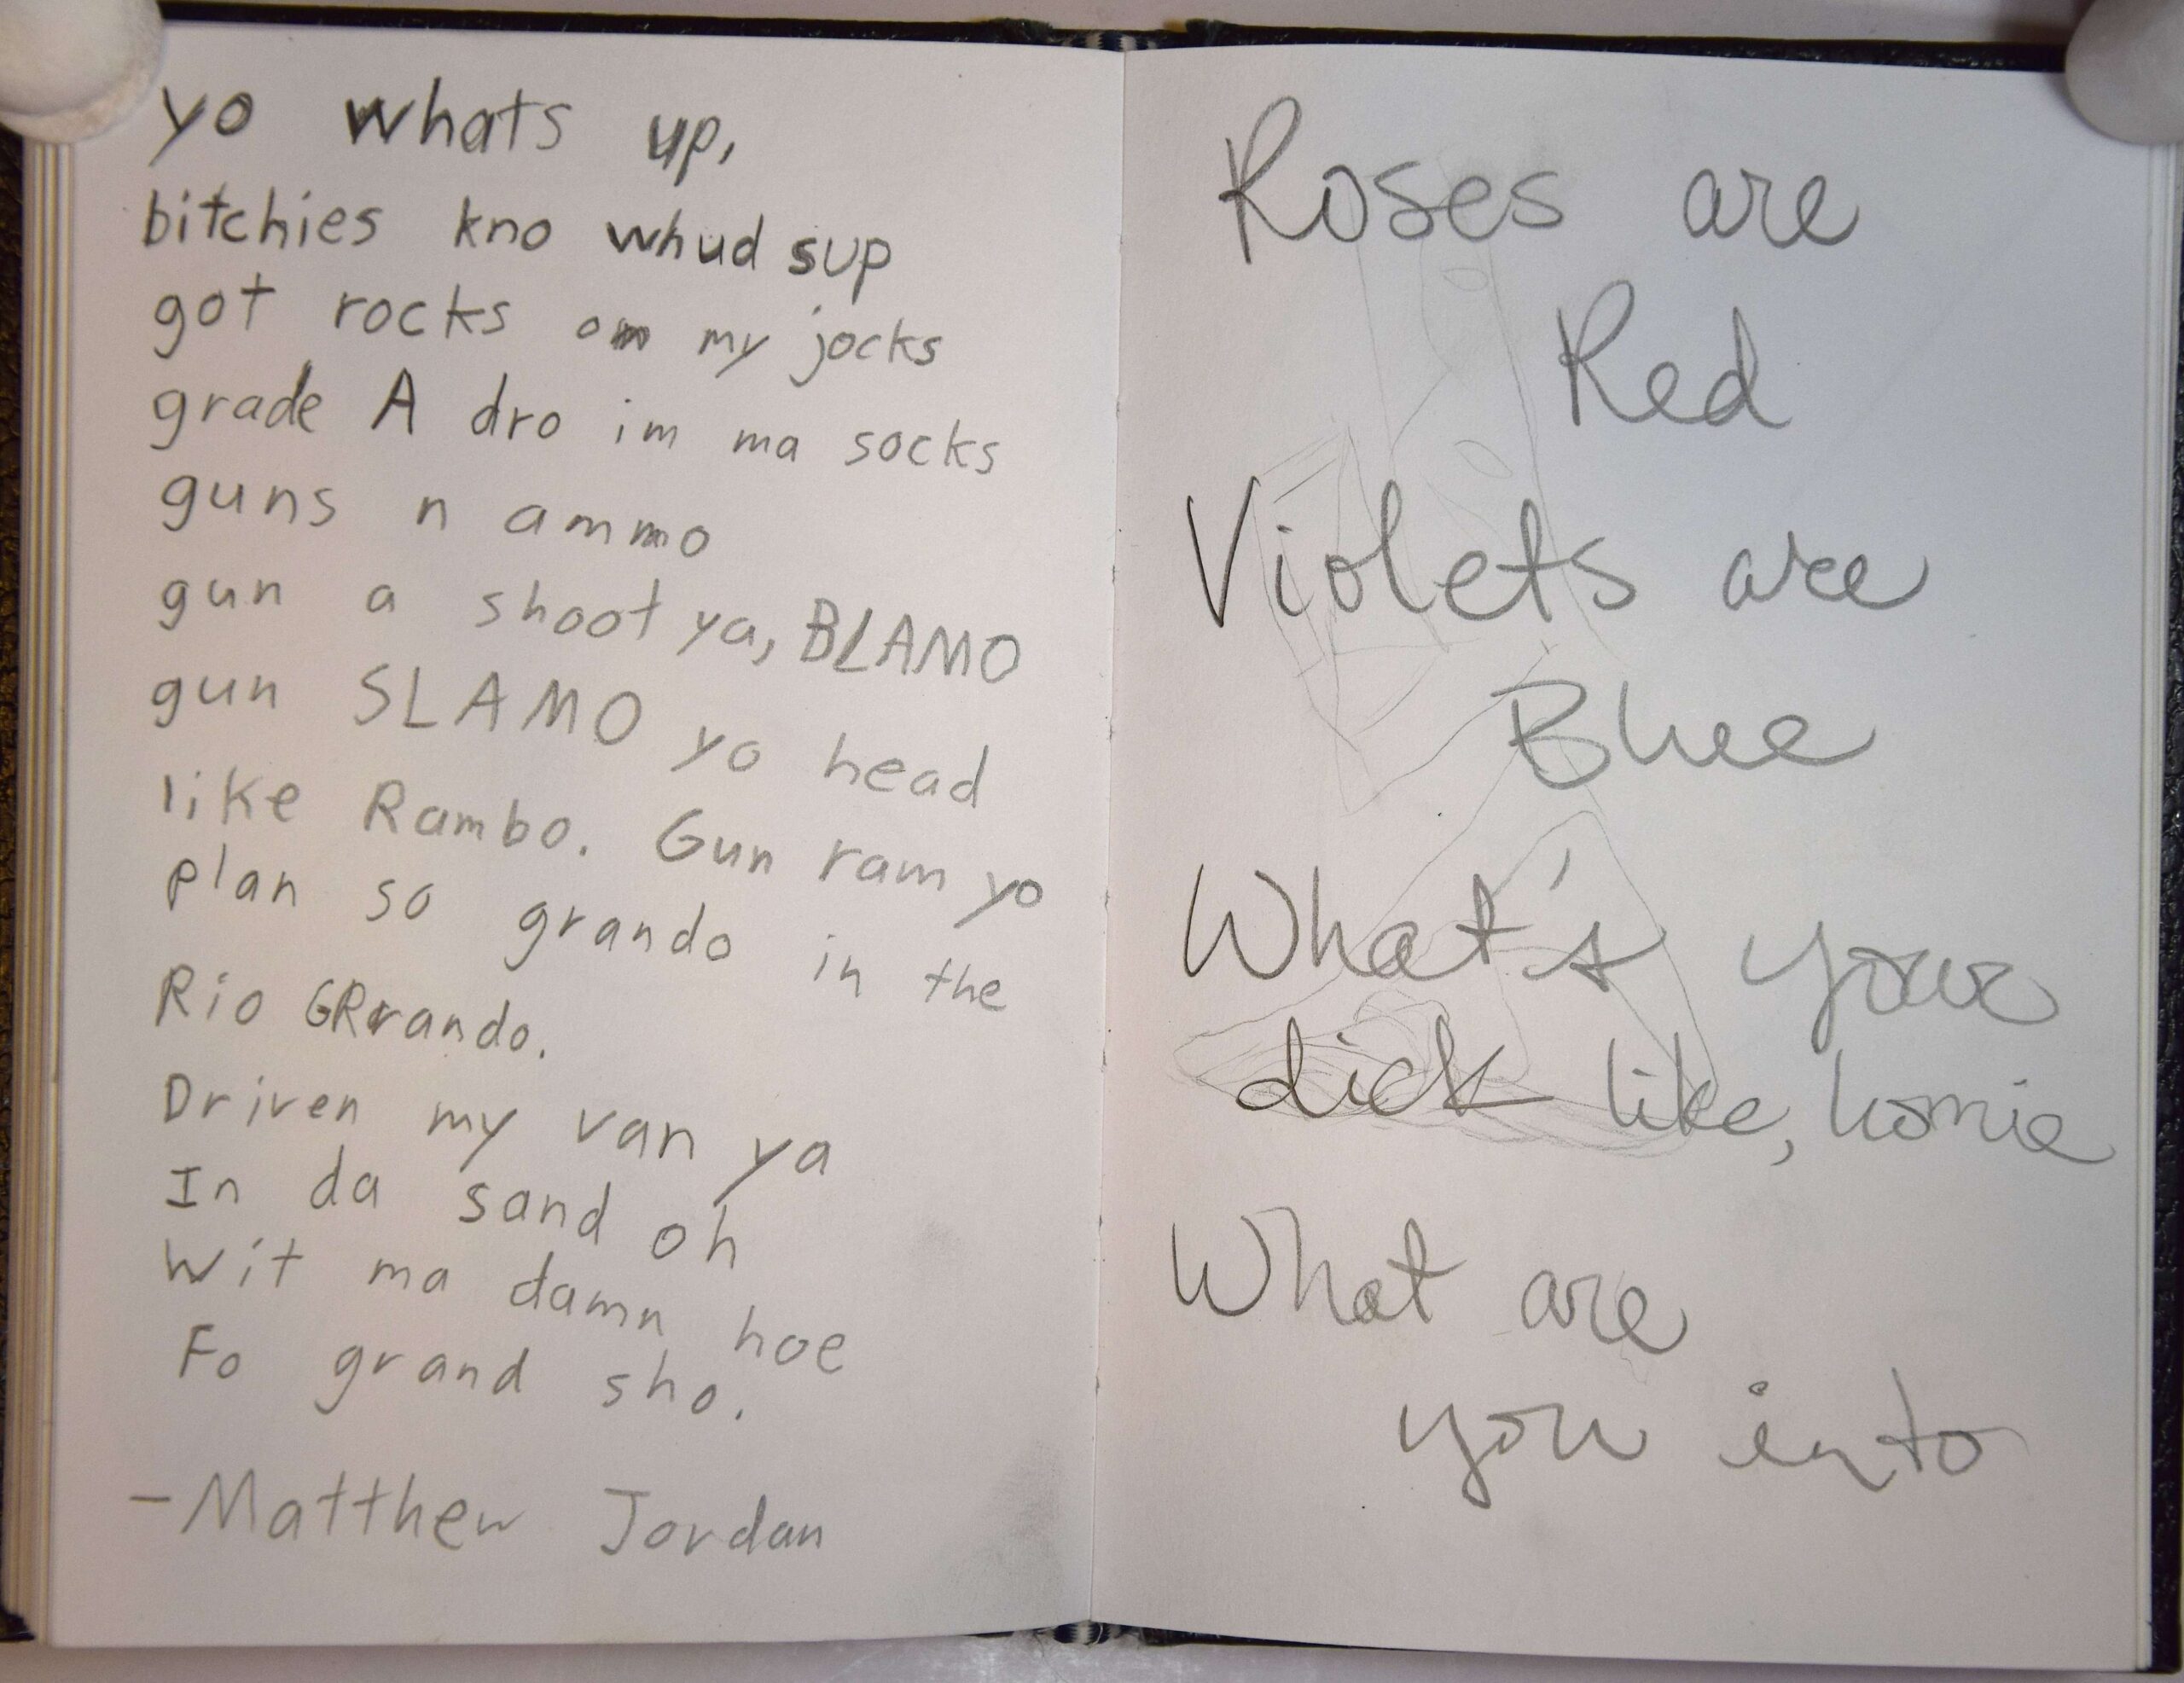 yo whats up,
bitchies kno whud sup
got rocks on my jocks
grade A dro im ma socks
guns n ammo
gun a shoot ya, BLAMO
gun SLAMO yo head
like Rambo. Gun ram yo
plan so grando in the
Rio GRrando.
Driven my van ya
In da sand oh
Wit ma damn hoe
Fo grand sho.
-Matthew Jordan
Roses are
Red
Violets are
Blue
What's your
dick like, homie
What are
you into